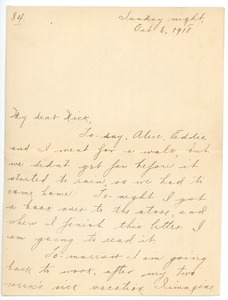 84
Sunday night,
Oct 6, 1918
My dear Dick,
To-day, Alice, Eddie
and I went for a walk, but
we didn't get far before it
started to rain so we had to
come home. To-night I got
a book over to the store, and
when I finish this letter I
am going to read it.
To-morrow I am going
back to work, after my two
week's sick vacation. I imagine